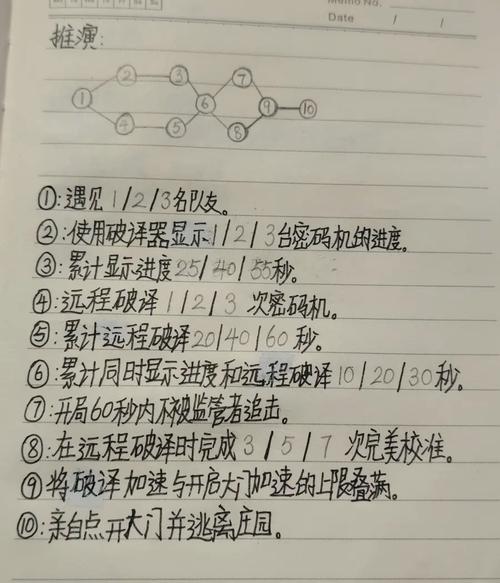 Memo No.
Date / /
推演:
② ③ ⑦
① ⑥ ⑨ ⑩
④ ⑤ ⑧
①:遇见1/2/3名队友。
②:使用破译器显示1/2/3台密码机的进度。
③:累计显示进度25/40/55秒.
④:远程破译1/2/3次密码机。
⑤:累计远程破译20/40/60秒。
⑥:累计同时显示进度和远程破译10/20/30秒。
⑦:开局60秒内不被监管者追击。
⑧:在远程破译时完成3/5/7次完美校准。
⑨将破译加速与开启大门加速的上限叠满。
⑩:亲自点开大门并逃离庄园。